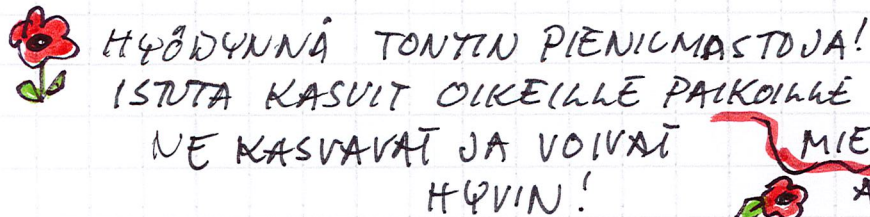 HYÖDYNNÄ TONTIN PIENILMASTOJA!
ISTUTA KASVIT OIKEILLE PAIKOILLE
NE KASVAVAT JA VOIVAT
HYVIN!